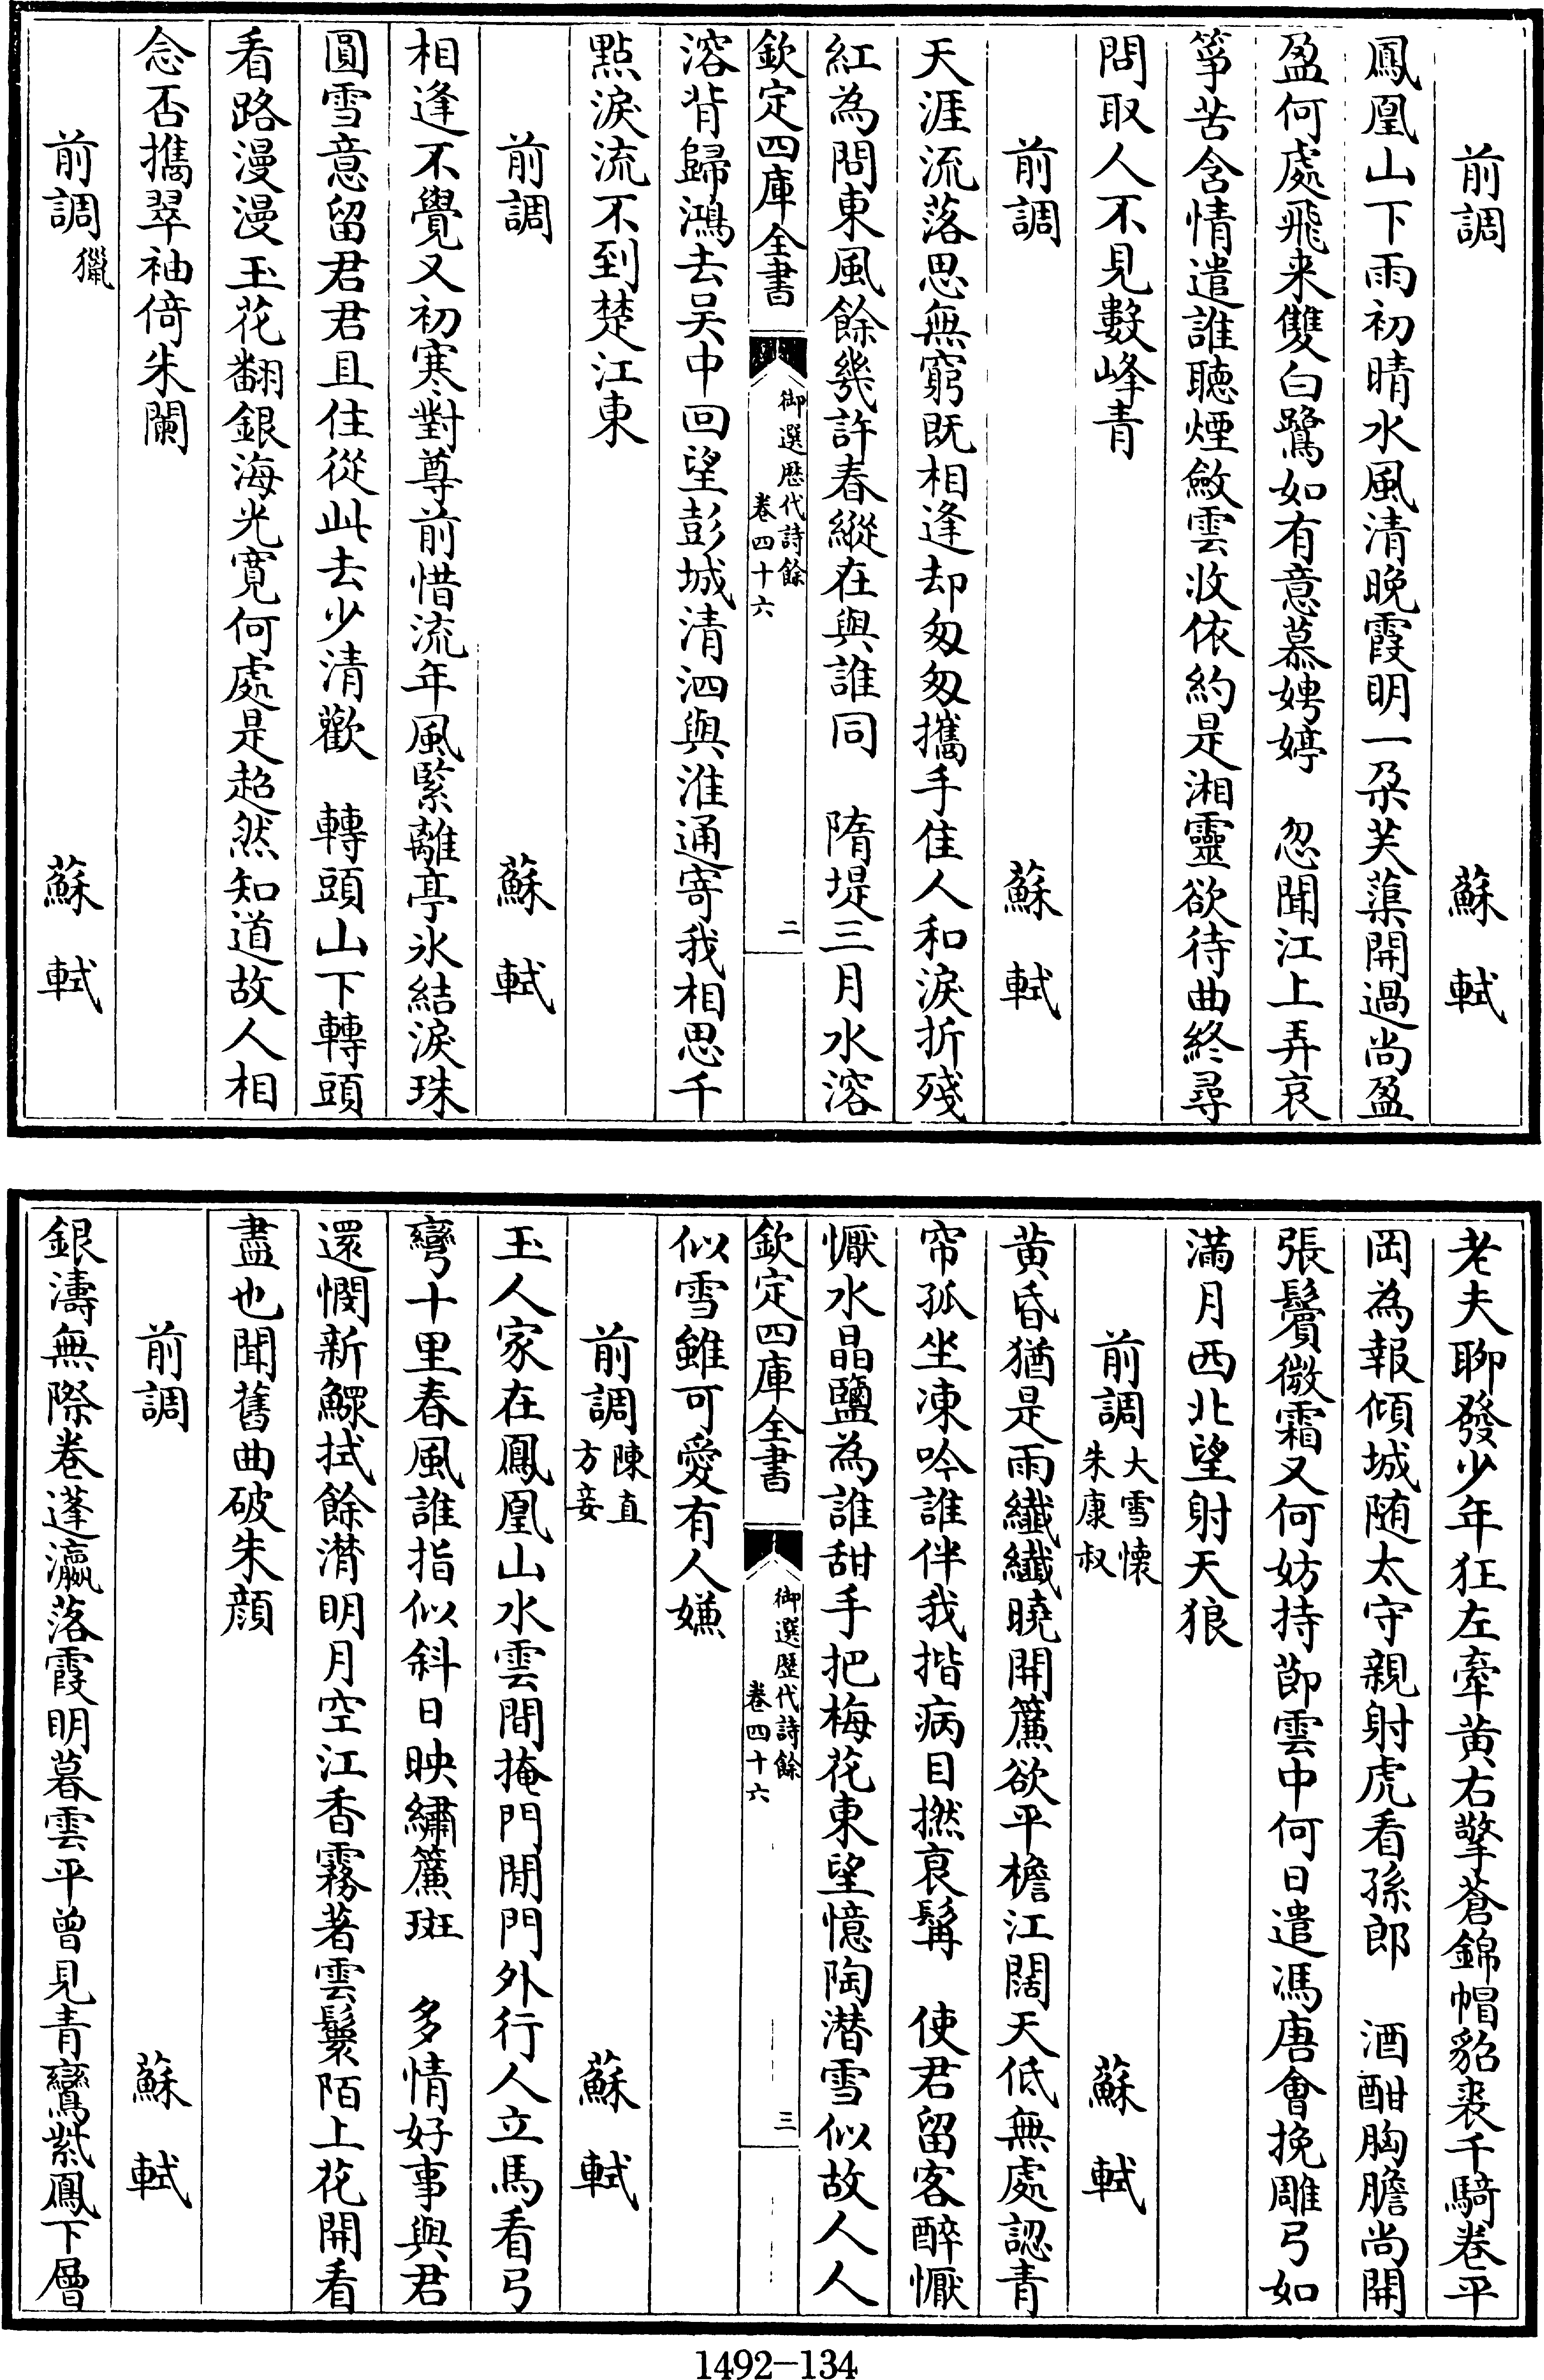 前調 蘇軾
鳳凰山下雨初晴水風清晚霞明一朶芙蕖開過尚盈
盈何處飛来雙白鷺如有意慕娉婷 忽聞江上弄哀
箏苦含情遣誰聽煙斂雲收依約是湘靈欲待曲終尋
問取人不見數峰青
前調 蘇軾
天涯流落思無窮既相逢却匆匆攜手佳人和淚折殘
紅為問東風餘幾許春縱在與誰同 隋堤三月水溶
欽定四庫全書 御選歴代詩餘 卷四十六 二
溶背歸鴻去吴中回望彭城清泗與淮通寄我相思千
點淚流不到楚江東
前調 蘇軾
相逢不覺又初寒對尊前惜流年風緊離亭氷結淚珠
圓雪意留君君且住從此去少清歡 轉頭山下轉頭
看路漫漫玉花翻銀海光寛何處是超然知道故人相
念否攜翠袖倚朱闌
前調 獵 蘇軾
老夫聊發少年狂左牽黄右擎蒼錦帽貂裘千騎卷平
岡為報傾城随太守親射虎看孫郎 酒酣胸膽尚開
張鬢微霜又何妨持節雲中何日遣馮唐會挽雕弓如
滿月西北望射天狼
前調 大雪懷朱康叔 蘇軾
黄昏猶是雨纖纖曉開簾欲平檐江闊天低無處認青
帘孤坐凍吟誰伴我揩病目撚衰髯 使君留客醉懨
懨水晶鹽為誰甜手把梅花東望憶陶潜雪似故人人
欽定四庫全書 御選歴代詩餘 卷四十六 三
似雪雖可愛有人嫌
前調 陳直方妾 蘇軾
玉人家在鳳凰山水雲間掩門閒門外行人立馬看弓
彎十里春風誰指似斜日映繡簾斑 多情好事與君
還憫新鰥拭餘潸明月空江香霧著雲鬟陌上花開看
盡也聞舊曲破朱顔
前調 蘇軾
銀濤無際卷蓬瀛落霞明暮雲平曾見青鸞紫鳳下層
1492-134